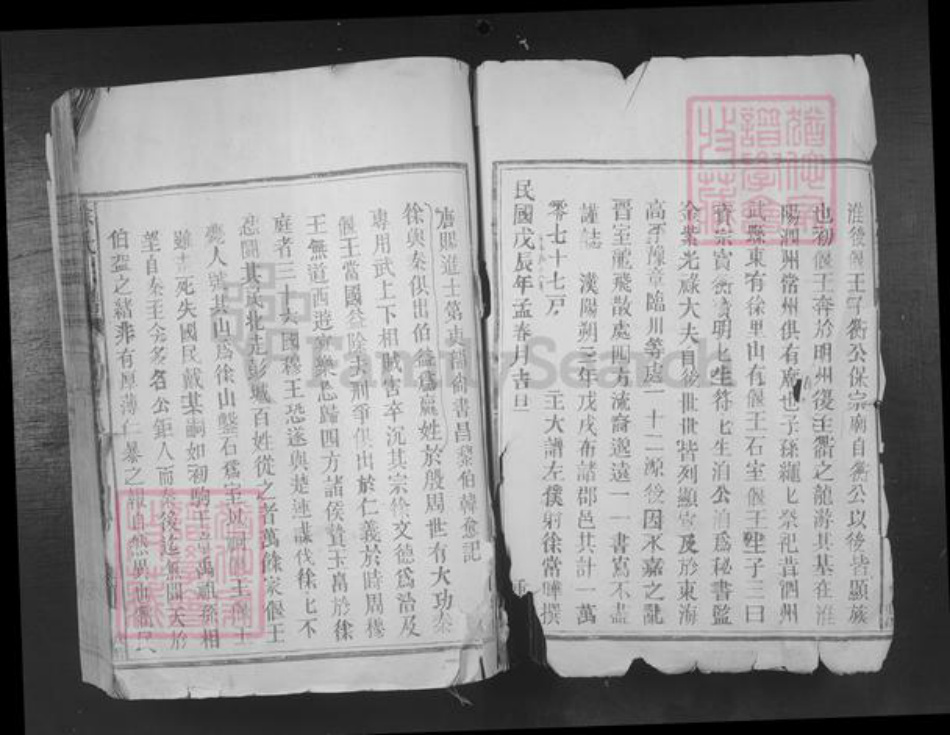 淮後偃王子衡公保宗廟自衡公以後皆顯族
也初偃王奔於明州後王衢之龍游其基在淮
陽泗州常州俱有廟也子孫繩匕祭祀昔泗州
武縣東有徐里山有偃王石室偃王生子三曰
寶宗寶衡寶明匕生待匕生泊公泊爲秘書監
金紫光祿大夫自後世世皆列顯宦及於東海
高平豫章臨川等處一十二源後因永嘉之亂
晉室龍飛散處四方流裔遐遠一一書寫不盡
謹誌 漢陽朔三年戊戌布諸郡邑共計一萬
零七十七戶 王大譜左僕射徐常曄撰
民國戊辰年孟春月吉旦
唐賜進士第吏部尚書昌黎伯韓愈記
徐與秦俱出伯益爲嬴姓於殷周世有大功秦
專用武上下相賊害卒沉其宗徐文德爲治及
偃王當國益除去刑爭俱出於仁義於時周穆
王無道西遊宴樂忘歸四方諸侯贄玉帛於徐
庭者三十六國穆王恐遂與楚連謀伐徐匕不
忍鬭其民北走彭城百姓從之者萬餘家偃王
薨人號其山爲徐山鑿石爲室以祠偃王
雖走死失國民戴其嗣如初駒王章禹祖孫相
望自秦至今多名公鉅人而秦後迄無聞天於
伯益之緒非有厚薄仁暴之報自然異也